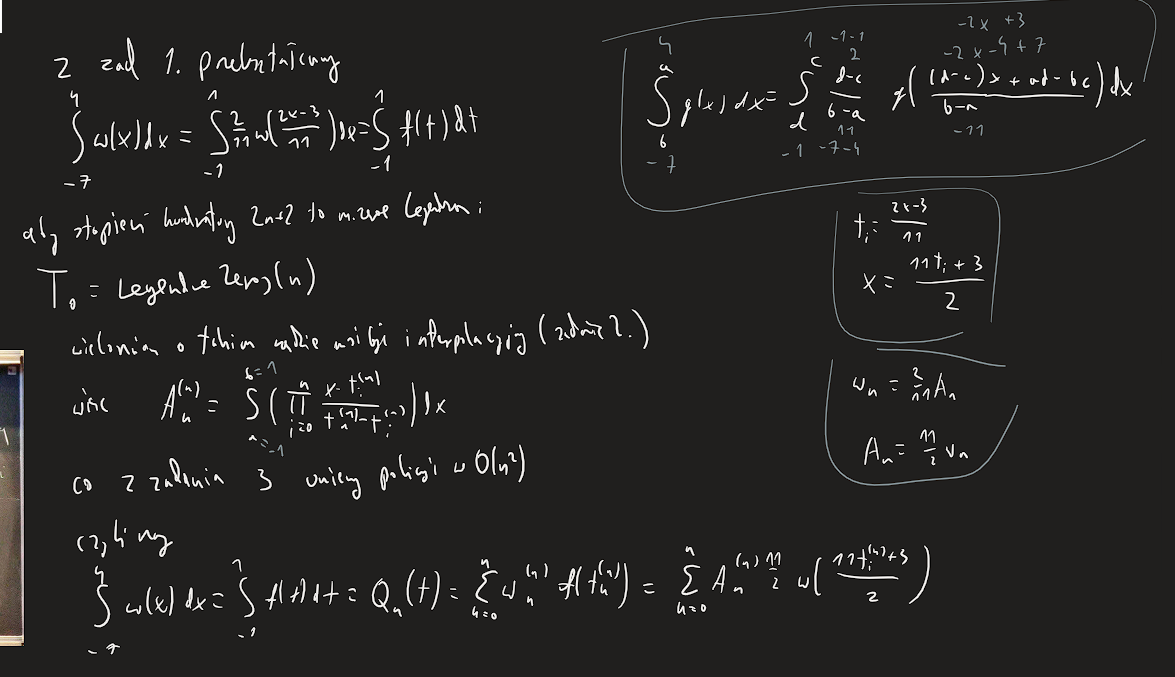 z zad 1. przekształcamy
∫_{-7}^{4} w(x)dx = ∫_{-1}^{1} 2/11 w((2x-3)/11)dx = ∫_{-1}^{1} f(t)dt
aby stopień kwadratury 2n+2 to
T_0 = Legendre Zeros(n)
wielomian o takim (zadanie 2.)
więc A_n^{(n)} = ∫_{a=-1}^{b=1} (∏_{i=0}^{n} (x-t_i^{(n)})/(t_n^{(n)}-t_i^{(n)})) dx
co z zadania 3 umiemy policzyć w O(n²)
czyli my
∫_{-7}^{4} w(x)dx = ∫_{-1}^{1} f(t)dt = Q_n(f) = ∑_{n=0}^{n} w_n^{(n)} f(t_n^{(n)}) = ∑_{n=0}^{n} A_n^{(n)} 11/2 w((11t_i^{(n)}+3)/2)
-2x +3
1 -1-1 -2x-4+7
∫_{b}^{a} g(x)dx = ∫_{d}^{c} (d-c)/(b-a) g(((d-c)x+ad-bc)/(b-a))dx
4 2 11 -11
-7 -1 -7-4
t_i = (2x-3)/11
x = (11t_i+3)/2
w_n = 2/11 A_n
A_n = 11/2 w_n